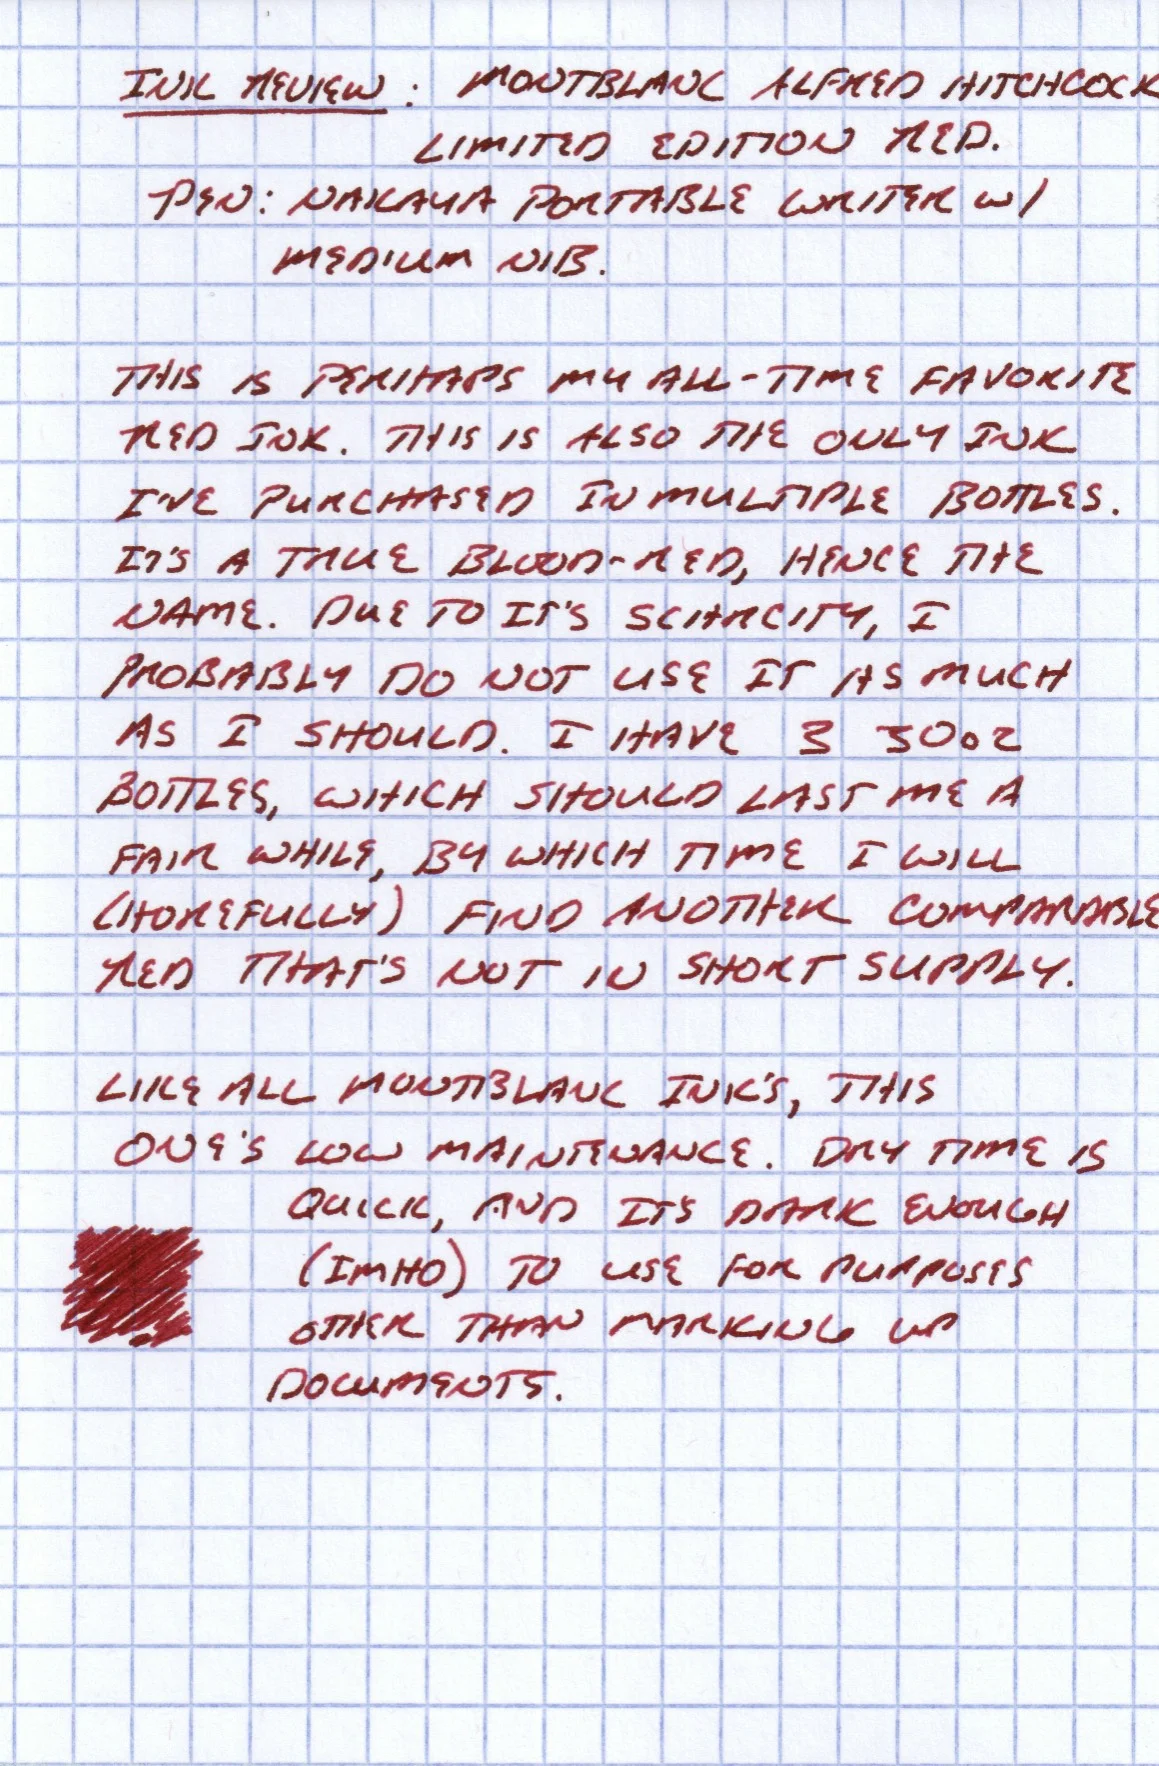 INK REVIEW: MONTBLANC ALFRED HITCHCOCK
LIMITED EDITION RED.
PEN: NAKAYA PORTABLE WRITER W/
MEDIUM NIB.
THIS IS PERHAPS MY ALL-TIME FAVORITE
RED INK. THIS IS ALSO THE ONLY INK
I'VE PURCHASED IN MULTIPLE BOTTLES.
IT'S A TRUE BLOOD-RED, HENCE THE
NAME. DUE TO IT'S SCARCITY, I
PROBABLY DO NOT USE IT AS MUCH
AS I SHOULD. I HAVE 3 30oz
BOTTLES, WHICH SHOULD LAST ME A
FAIR WHILE, BY WHICH TIME I WILL
(HOPEFULLY) FIND ANOTHER COMPARABLE
RED THAT'S NOT IN SHORT SUPPLY.
LIKE ALL MONTBLANC INK'S, THIS
ONE'S LOW MAINTENANCE. DRY TIME IS
QUICK, AND IT'S DARK ENOUGH
(IMHO) TO USE FOR PURPOSES
OTHER THAN MARKING UP
DOCUMENTS.